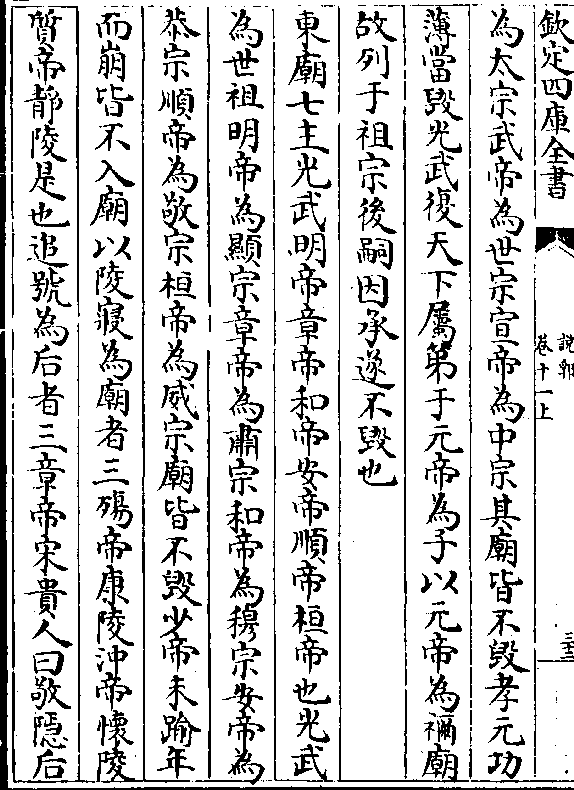 欽定四庫全書
說郛
卷十一上
三十三
為太宗武帝為世宗宣帝為中宗其廟皆不毀孝元功
薄當毀光武復天下屬第于元帝為子以元帝為禰廟
故列于祖宗後嗣因承遂不毀也
東廟七主光武明帝章帝和帝安帝順帝桓帝也光武
為世祖明帝為顯宗章帝為肅宗和帝為穆宗安帝為
恭宗順帝為敬宗桓帝為威宗廟皆不毀少帝未踰年
而崩皆不入廟以陵寢為廟者三殤帝康陵沖帝懷陵
質帝靜陵是也追號為后者三章帝宋貴人曰敬隱后